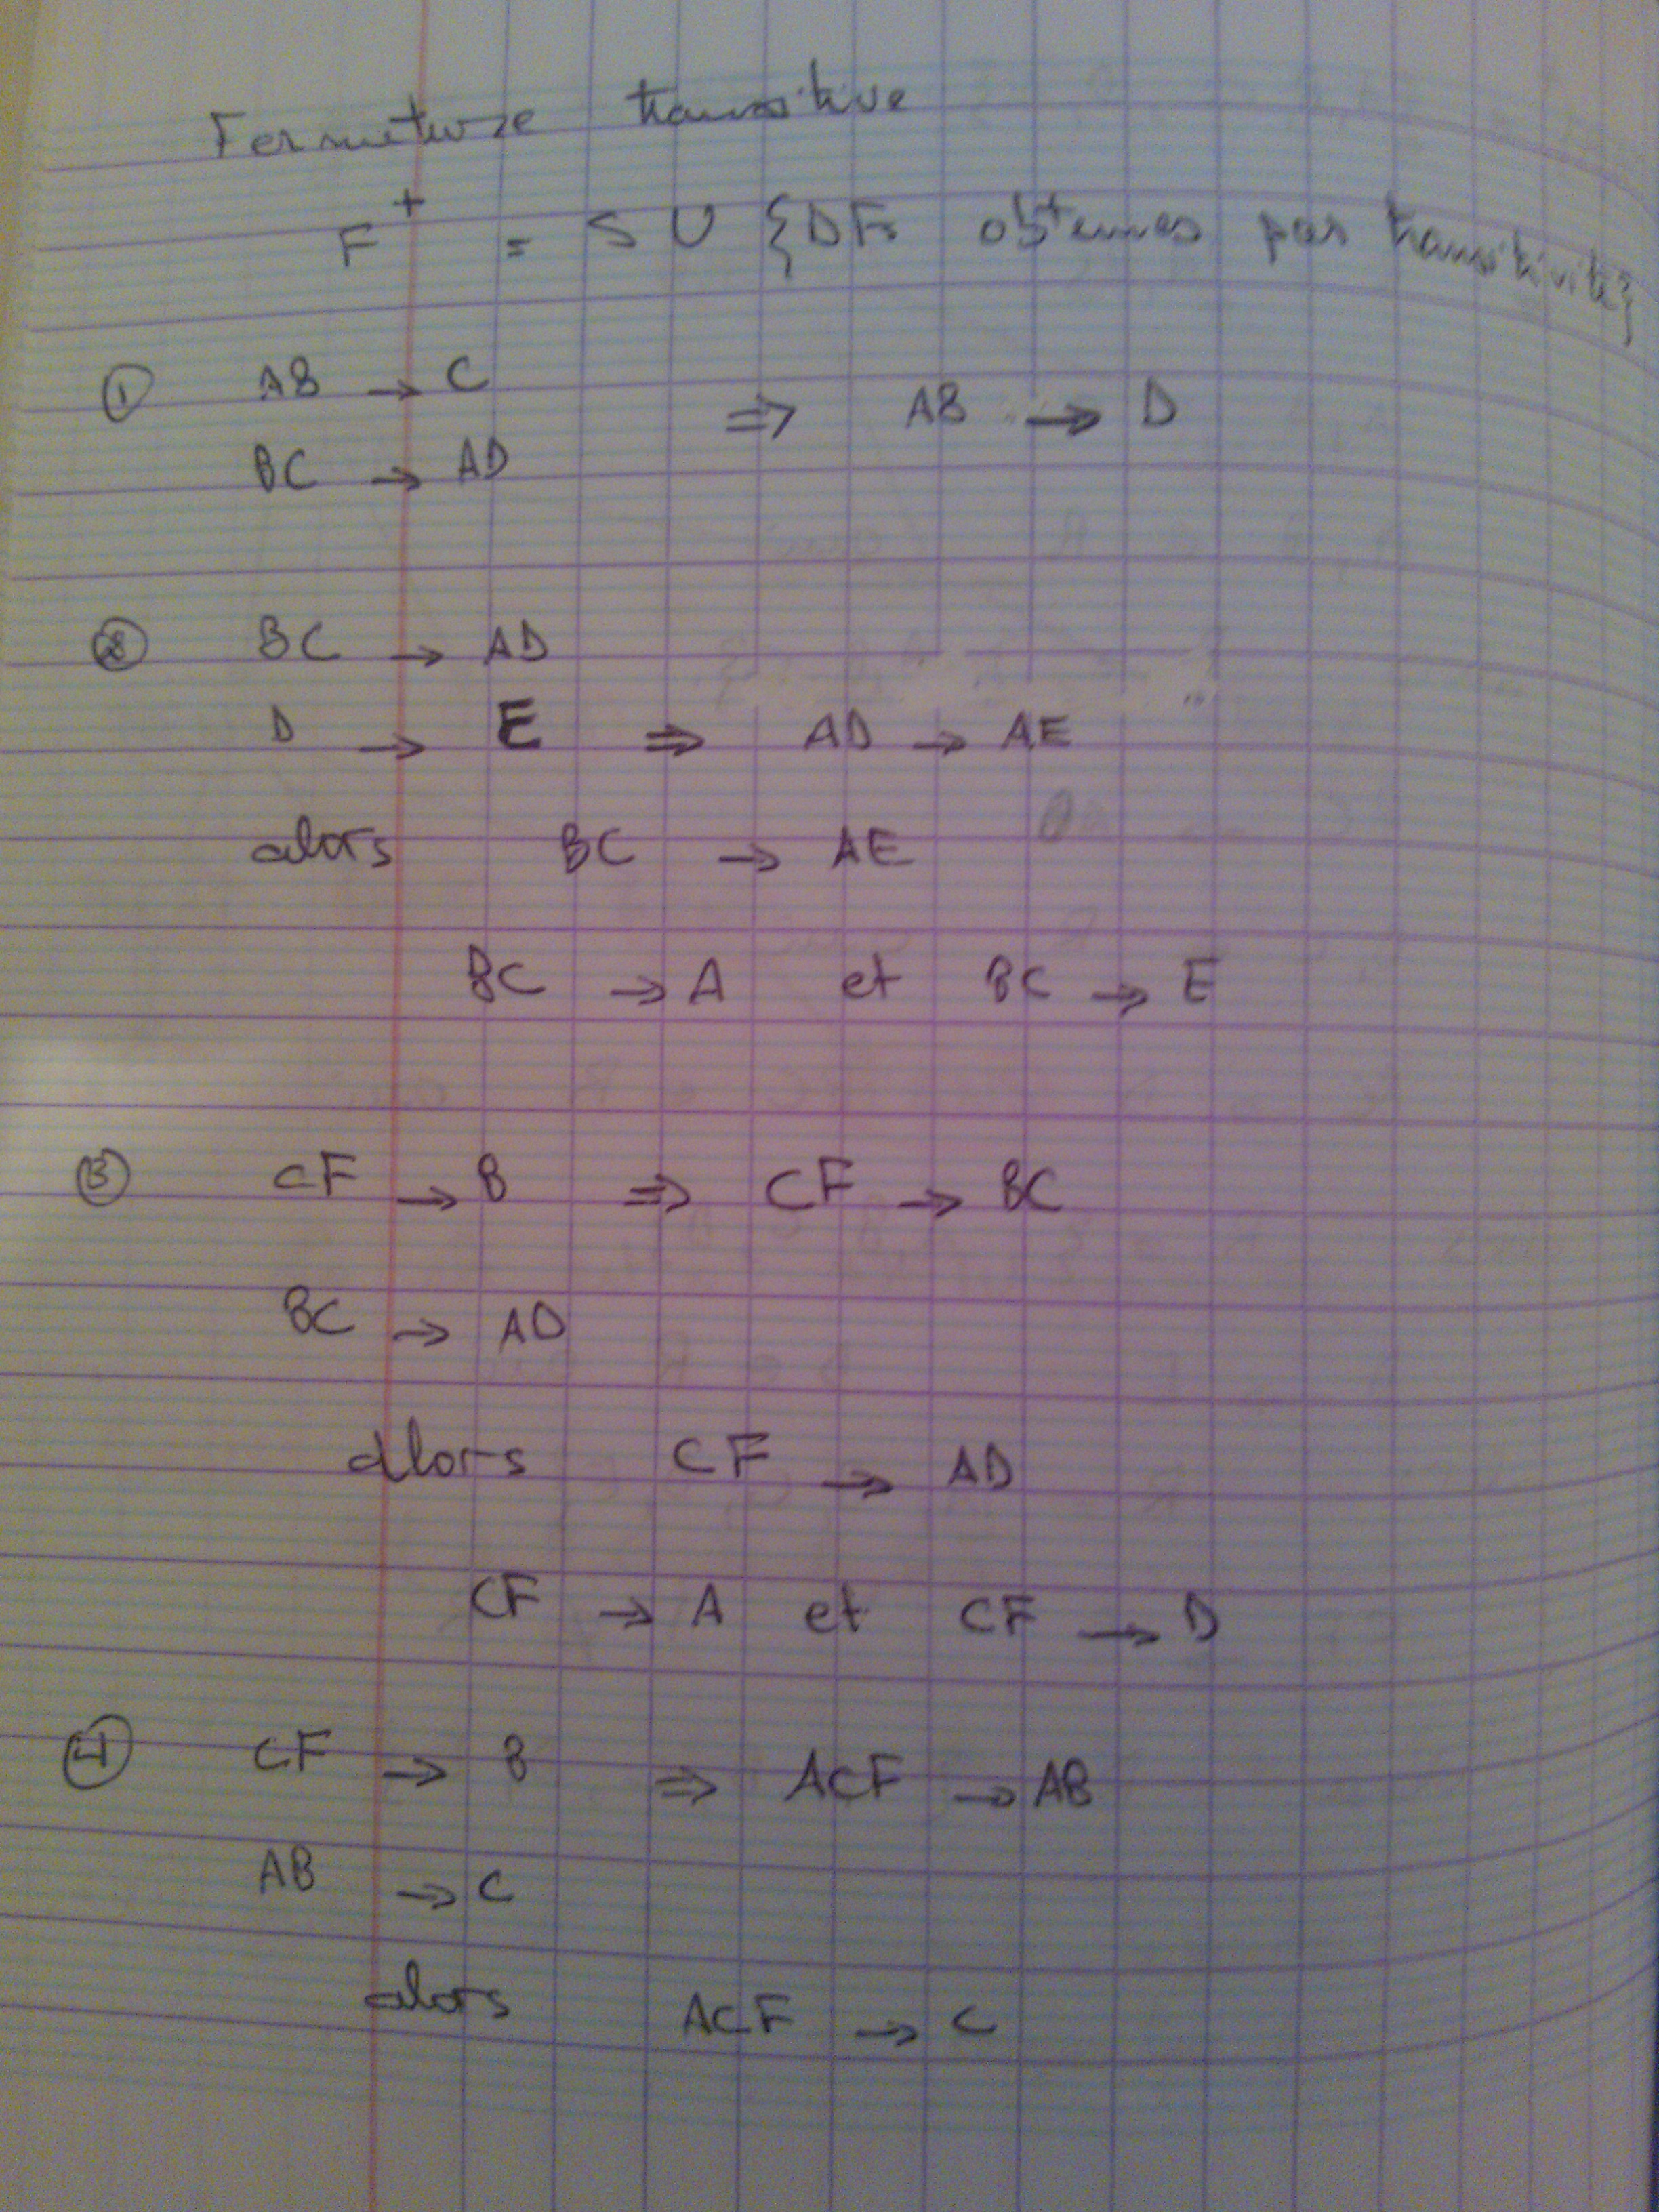 Fermeture transitive
F⁺ = S U {DFs obtenues par transitivité}
① AB → C
⇒ AB → D
BC → AD
② BC → AD
D → E ⇒ AD → AE
alors BC → AE
BC → A et BC → E
③ CF → B ⇒ CF → BC
BC → AD
alors CF → AD
CF → A et CF → D
④ CF → B ⇒ ACF → AB
AB → C
alors ACF → C